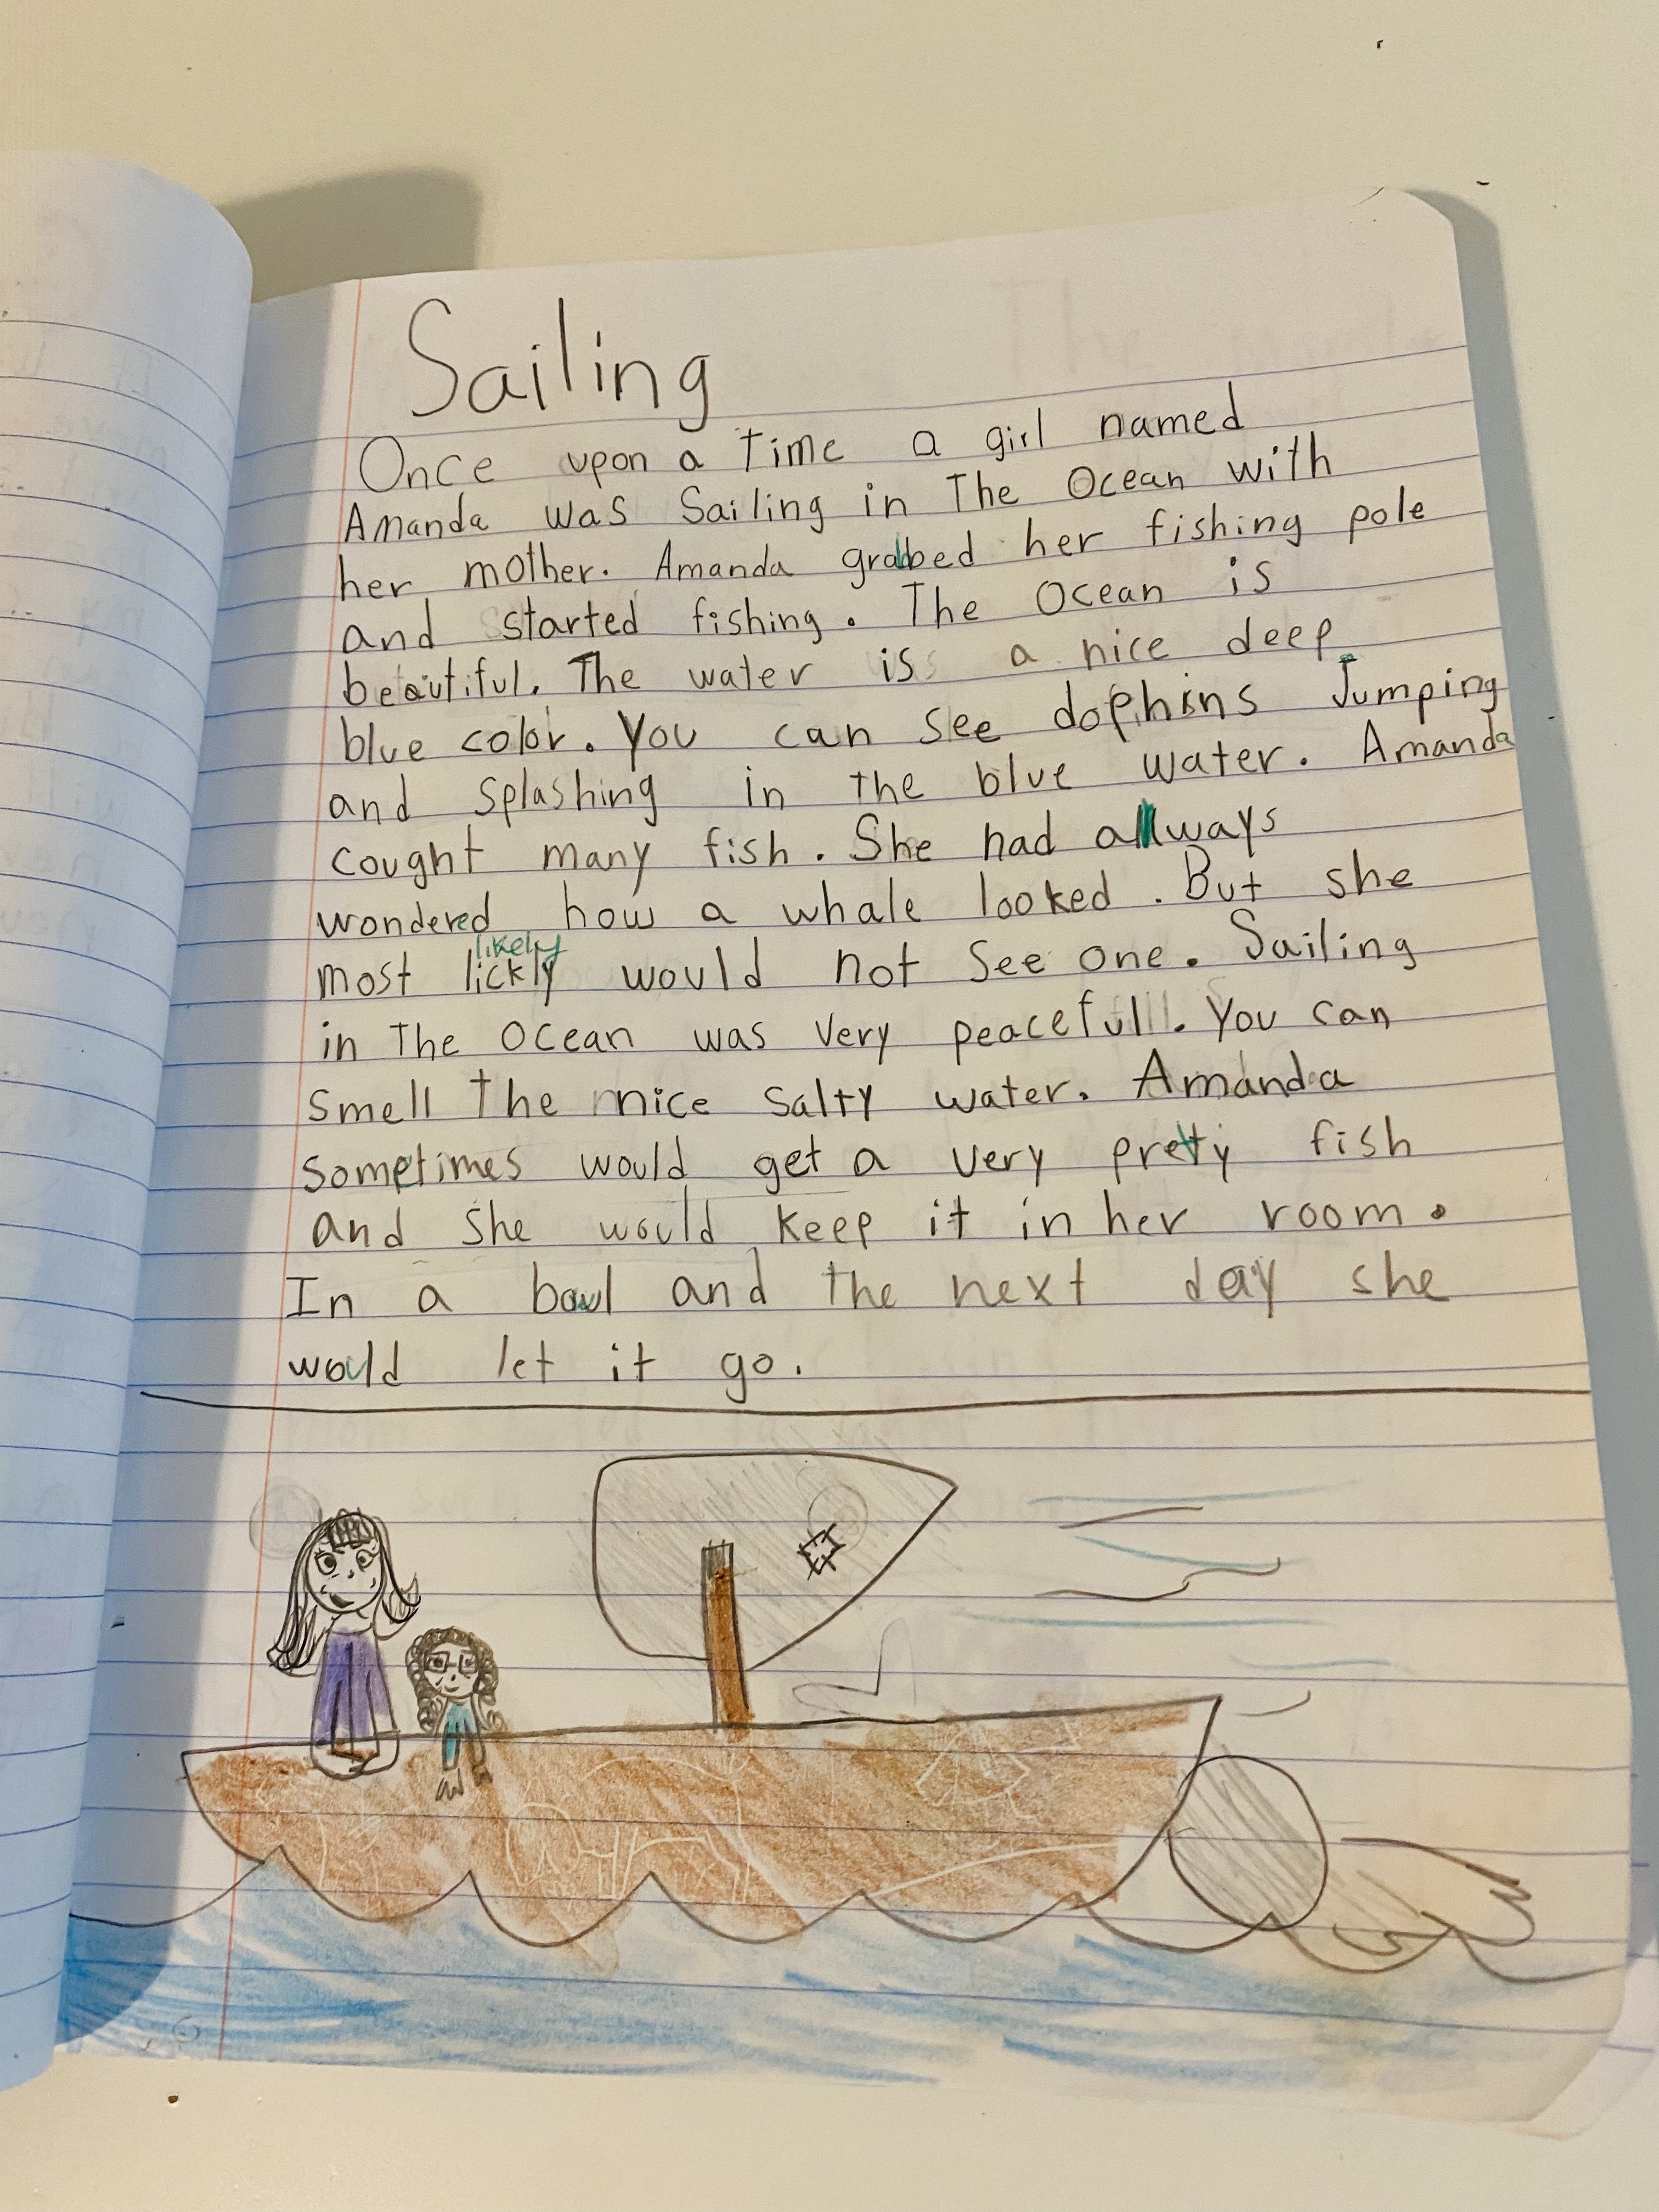 Sailing
Once upon a time a girl named
Amanda was Sailing in The Ocean with
her mother. Amanda grabbed her fishing pole
and started fishing. The Ocean is
beautiful. The water is a nice deep
blue color. You can see dophins Jumping
and splashing in the blue water. Amanda
cought many fish. She had always
wondered how a whale looked. But she
likely
most lickly would not see one. Sailing
in The Ocean was very peaceful. You can
smell the nice salty water. Amanda
sometimes would get a very pretty fish
and she would keep it in her room.
In a bowl and the next day she
would let it go.